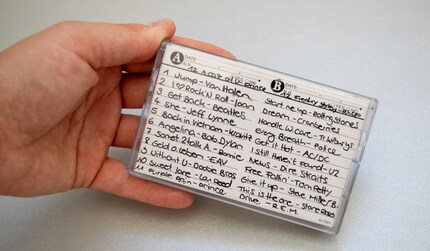 A DATE
B DATE
1 Jump - Van Halen
2 I ♡ Rock'N Roll - Joan
3 Get Back - Beatles
4 She - Jeff Lynne
5 Back in Vietnam - Kravitz
6 Angelina - Bob Dylan
7 Sonet 2 tall A -
8 Geld o. Leben - EAV
9 Without U - Doobie Bros
10 Sweet Jane - Lou Reed
11 Purple Rain - Prince
Start me up - Rolling Stones
Dream - Cranberries
Handle W. Care - Tr. Wilburys
Every Breath - Police
Got it Hot - AC/DC
I Still Haven't Found - U2
News - Dire Straits
Free Fallin' - Tom Petty
Give it up - Steve Miller B.
This is the one - Stone Roses
Drive - R.E.M.